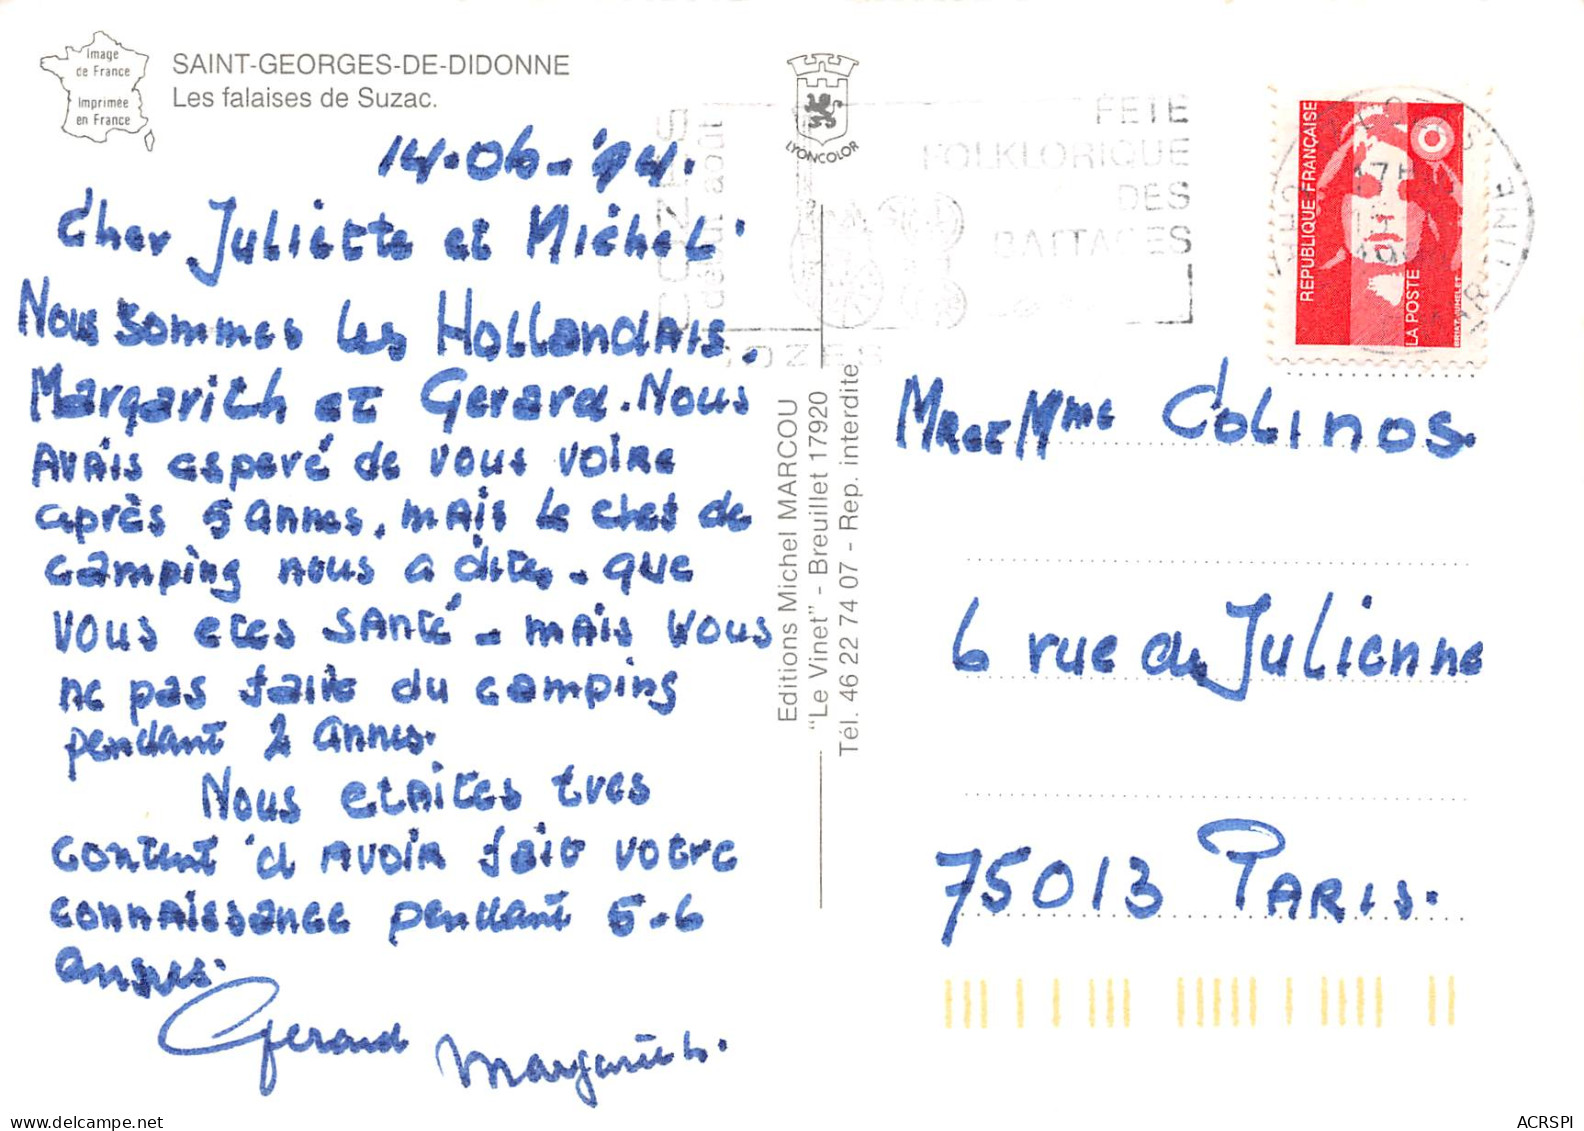 Image
de France
Imprimée
en France
SAINT-GEORGES-DE-DIDONNE
Les falaises de Suzac.
LYONCOLOR
14-06-'94.
Cher Juliette et Michel.
Nous sommes les Hollandais.
Margarith et Gerard. Nous
Avais esperé de vous voire
après 5 annes, mais le chef de
camping nous a dites - que
vous etes santé - mais vous
ne pas faite du camping
pendant 2 annes.
Nous etaites tres
content 'd avoir fait votre
connaissance pendant 5-6
annes.
Gerard Margarith.
Editions Michel MARCOU
"Le Vinet" - Breuillet 17920
Tél. 46 22 74 07 - Rep. interdite
COZES
début août
FÊTE
FOLKLORIQUE
DES
BATTAGES
COZES
RÉPUBLIQUE FRANÇAISE
LA POSTE
BRIAT-JUMELET
17H
Mr et Mme Colinos.
6 rue de Julienne
75013 Paris.
ACRSPI